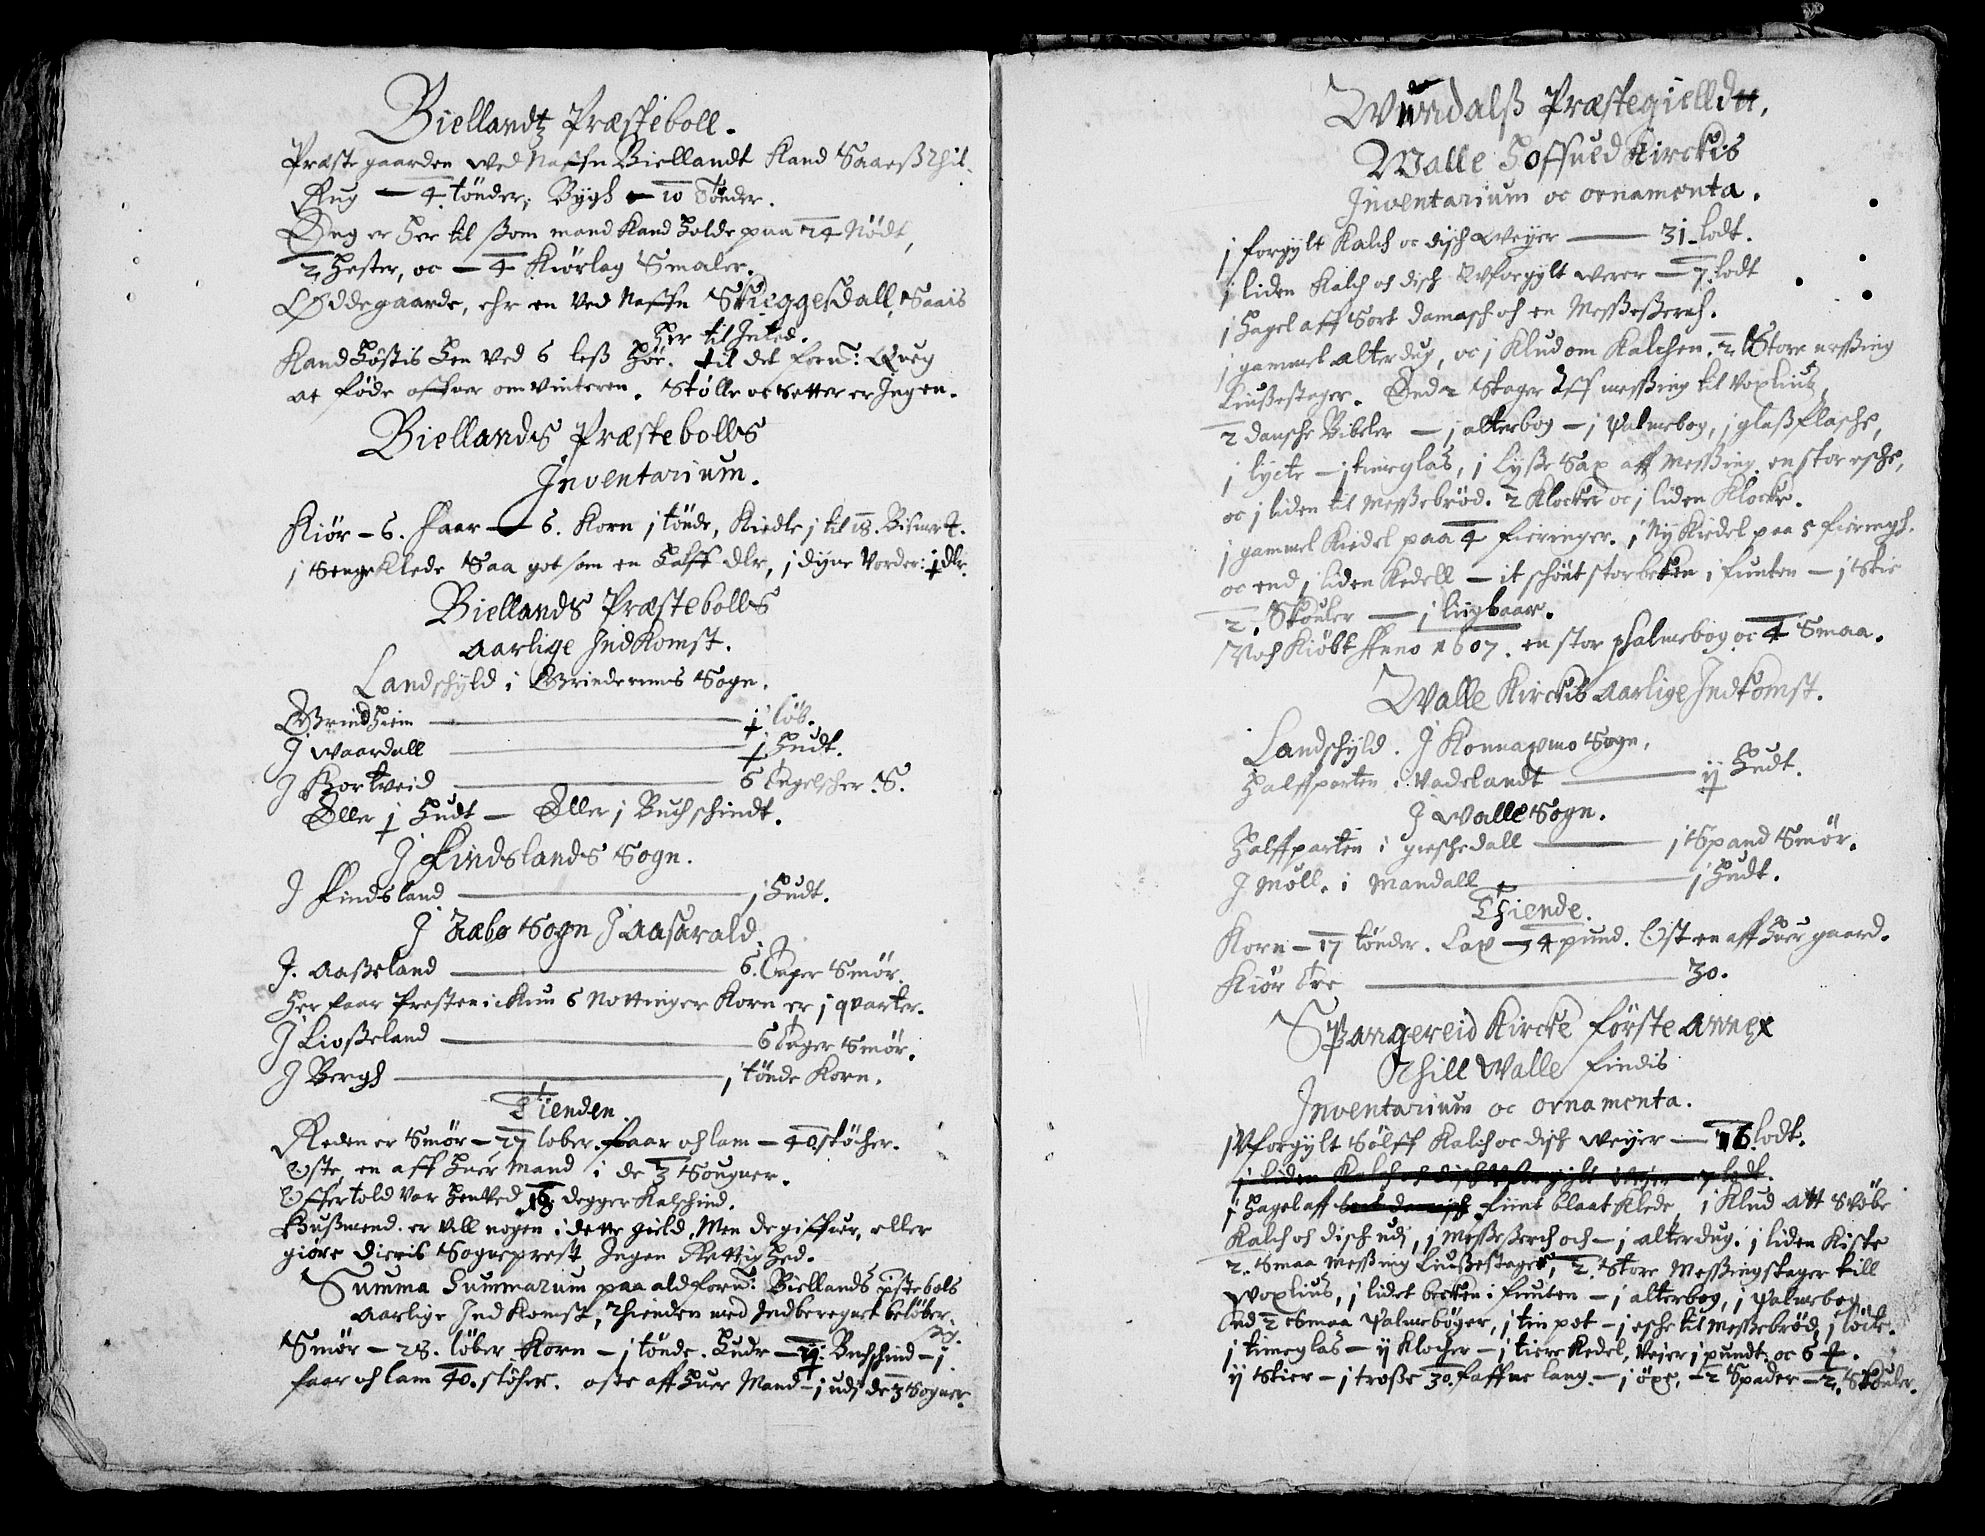 Biellandtz Præsteboll.
Præste gaarden wed Naffn Biellandt Kand Saaeß thil
Rug — 4 tønder, Bygh — 10 Tønder.
Eng er her til ßom mand Kand holde paa 24 Nødt,
2 hester, oc — 4 Kiørlag Smaler.
Øddegaarde, ehr en ved Naffn Skieggesdall, Saais
her til Inted.
Kand høstis hen ved 6 leß høe. til det forn: Queg
at føde offuer om vinteren. Stølle oc Setter er Ingen.
Biellands Præstebolls
Inventarium.
Kiør – 6. Faar — 6. Korn j tønde, Kiedle j til 18. Bismer t.
j Sengeklede Saa got som en halff dlr, j dyne Vorder: j dlr.
Biellands Præstebolls
Aarlige Indkomst.
Landschyld i Grinderems Sogn.
Grindheim — j løb.
J Waardall — j hudt.
J Kortveid — 6 Engelscher S.
Eller j hudt — Eller j Buchschindt.
J Findslands Sogn.
J Findsland — j hudt.
J Aabø Sogn J Aasarald
J. Aaßeland — 6. Tager Smør.
Her faar Presten ickun 6 Nottinger Korn er j qvarter.
J Lioßeland — 6 Tager Smør.
J Bergh — j tønde Korn.
Tienden
Reden er Smør – 27 løber. Faar och lam – 40 støcher.
Oste, en aff huer mand i de 3 Sougner.
Offertold var hen ved 18 degger Kalschind.
Hußmend er vell nogen i dette gield, Men de giffuer, eller
giøre dieris Sogneprest Ingen Rettighed.
Summa Summarum paa ald forn: Biellands pstebols
Aarlige Indkomst, thienden med Indberegnet beløber
sig.
Smør – 28. løber Korn – j tønde. Hude – ij Buchschind – j
faar och lam 40. støcher. oste aff huer Mand – j udj de 3 Sogner.
Mandalß Præstegielldtt,
Walle Hoffued Kirckis
Inventarium oc ornamenta.
j forgylt Kalch oc disch weyer — 31 lodt.
j liden Kalch och disch Uforgylt werer — 7 lodt
j hagel aff Sort damasch och en Messesserch.
j gammel alterdug, oc j Klud om Kalchen. 2 Store messing
Liußestager. End 2 Stager Aff messing til Voxliuß,
2 dansche Bibeler — j alterbog — j Psalmebog, j glaßflasche,
j lycte — j timeglas, j Lyße Sax aff Messing, en stor esche,
oc j liden til Messebrød. 2 Klocker oc j liden Klocke.
j gammel Kiedel paa 4 fieringer. j Ny Kiedel paa 5 fieringh.
oc end j liden Kedell — it schønt stor becken i funten — j Skie
2. Skouler — j liigbaar.
Noch Kiøbt Anno 1607. en stor psalmebog oc 4 Smaa.
Walle Kirckis Aarlige Indkomst.
Landschyld. J Konnaxmo Sogn,
Halffparten i Vadelandt — ij hudt.
J Walle Sogn.
Halffparten i gieschedall — j Spand Smør.
J Møll. i Mandall — j hudt.
Thiende.
Korn – 17 tønder. Lax – 4 pund. Ost en aff huer gaard.
Kiør Tre — 30.
Spangereid Kircke Første Annex
Thill Walle findis
Inventarium oc ornamenta.
j Uforgylt Sølff Kalch oc disch weyer — 16 lodt.
j liden Kalch och disch Uforgylt weyer – 7 lodt.
j hagel aff Sort damasch fiint blaat Klede, j Klud Att Støbe
Kalch och disch udj, j Messesserch och – j alterdug. j liden Kiste
2. Smaa Messing Liußestager, 2. Store Messingstager till
Woxliuß, j lidet becken i funten – j alterbog, j Psalmebog
End 2 Smaa Psalmebøger, j tin pot – j esche til Messebrød, j løcte.
j timeglas – ij Klocher – j tiere Kedel, Veier j pundt oc 6
ij Skier – j troße 30 faffne lang. – j øxe, – 2 Spader – 2. Skouler.